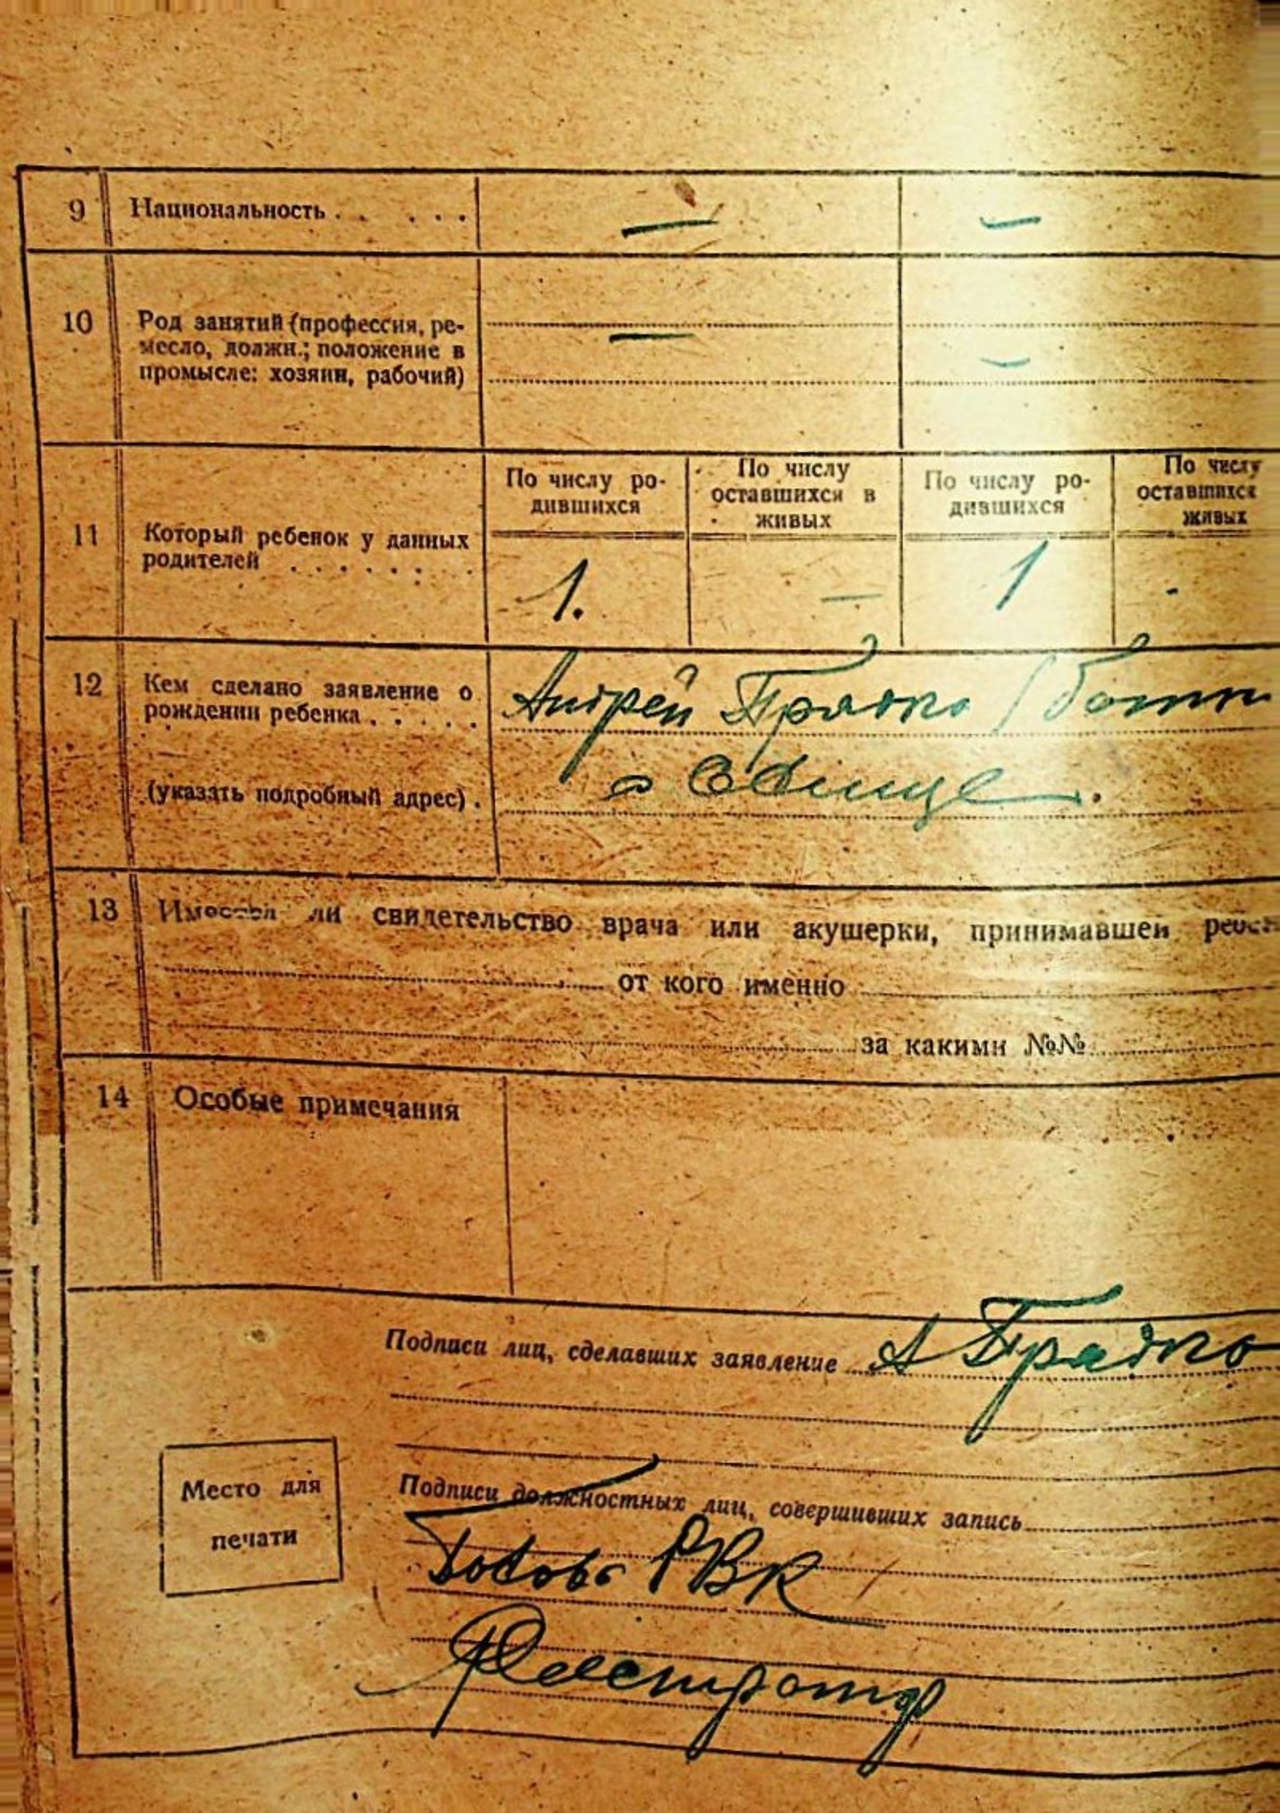 9 Национальность . . . . . . — —
10 Род занятий (профессия, ре-
месло, должн.; положение в
промысле: хозяин, рабочий) — —
По числу ро- По числу По числу ро- По числу
дившихся оставшихся в дившихся оставшихся
живых живых
11 Который ребенок у данных
родителей . . . . . . . 1. — 1 -
12 Кем сделано заявление о
рождении ребенка . . . . . Андрей
(указать подробный адрес) .
13 Имеется ли свидетельство врача или акушерки, принимавшей
от кого именно
за какими №№
14 Особые примечания
Подписи лиц, сделавших заявление А
Место для
печати
Подписи должностных лиц, совершивших запись
Голова РВК